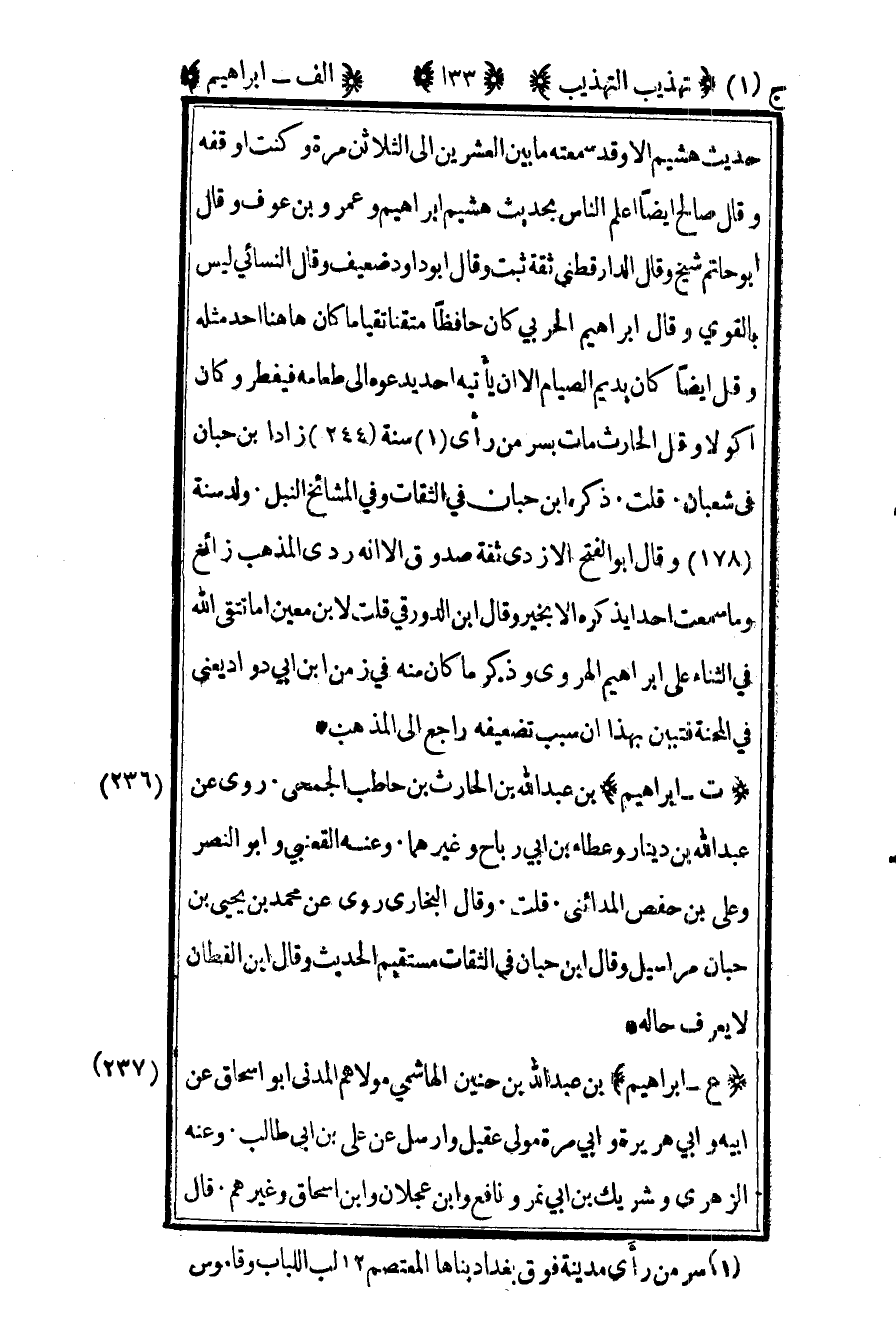 ج (١) ﴿ تهذيب التهذيب ﴾ ﴿ ١٣٣ ﴾ ﴿ الف ـ ابراهيم ﴾
حديث هشيم الا وقد سمعته ما بين العشرين الى الثلاثن مرة و كنت اوقفه
و قال صالح ايضاً اعلم الناس بحديث هشيم ابراهيم و عمرو بن عوف و قال
ابو حاتم شيخ و قال الدارقطني ثقة ثبت و قال ابو داود ضعيف و قال النسائي ليس
بالقوي و قال ابراهيم الحربي كان حافظاً متقنا تقيا ما كان هاهنا احد مثله
و قل ايضاً كان يديم الصيام الا ان يأتيه احد يدعوه الى طعامه فيفطر و كان
اكولا و قل الحارث مات بسر من رأى (١) سنة (٢٤٤) زادا بن حبان
فى شعبان · قلت · ذكره ابن حبان في الثقات وفي المشائخ النبل · ولد سنة
(١٧٨) و قال ابو الفتح الازدى ثقة صدوق الا انه ردى المذهب زائغ
وما سمعت احدا يذكره الا بخير وقال ابن الدورقي قلت لابن معين اما تتقى الله
في الثناء على ابراهيم الهروى و ذكر ما كان منه في زمن ابن ابي دواد يعني
في المحنة فتبين بهذا ان سبب تضعيفه راجع الى المذهب *
﴿ ت ـ ابراهيم ﴾ بن عبد الله بن الحارث بن حاطب الجمحى · روى عن (٢٣٦)
عبد الله بن دينار و عطاء بن ابي رباح و غيرهما · و عنه القعنبي و ابو النصر
وعلى بن حفص المدائنى · قلت · وقال البخارى روى عن محمد بن يحيى بن
حبان مراسيل وقال ابن حبان في الثقات مستقيم الحديث وقال ابن القطان
لا يعرف حاله *
﴿ ع ـ ابراهيم ﴾ بن عبد الله بن حنين الهاشمي مولاهم المدنى ابو اسحاق عن (٢٣٧)
ابيه و ابي هريرة و ابي مرة مولى عقيل وارسل عن على بن ابي طالب · و عنه
الزهرى و شريك بن ابي نمر و نافع وابن عجلان وابن اسحاق وغيرهم · قال
(١) سر من رأى مدينة فوق بغداد بناها المعتصم ١٢ لب اللباب وقاموس